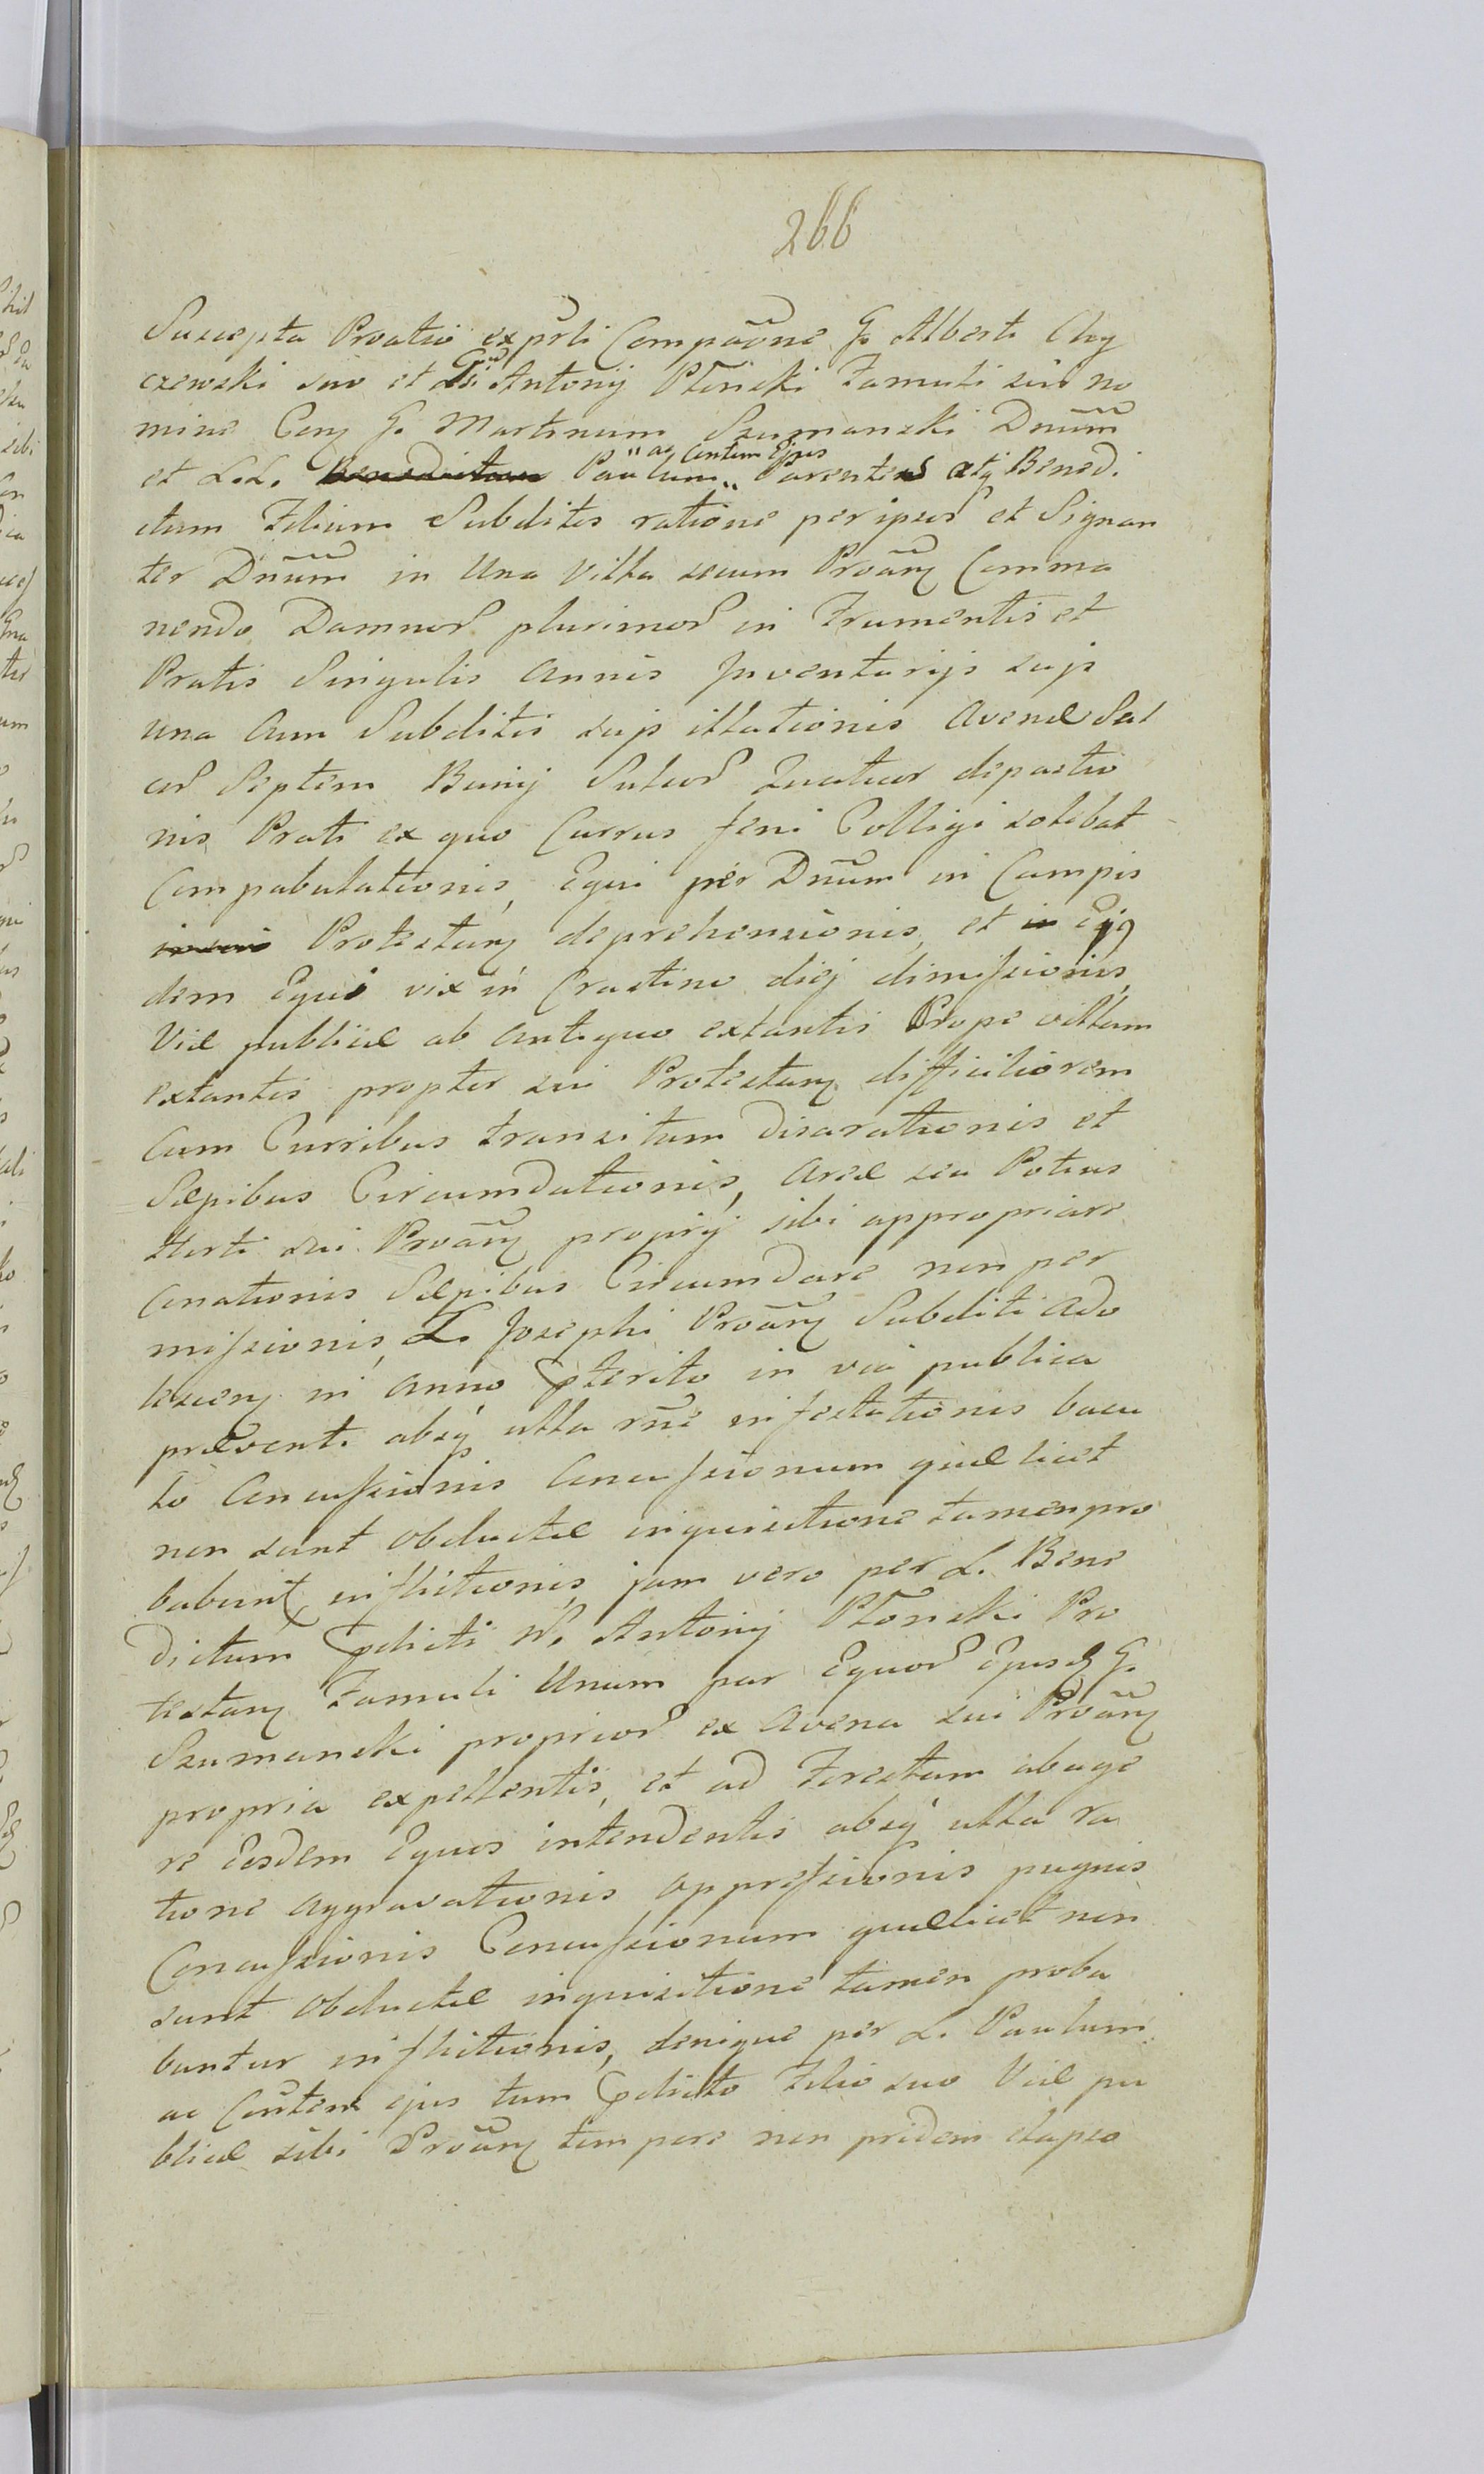 266
Suscepta Proatio ex psrli Compaõne G. Alberti Chy
czewski suo et Gsi Antonij Płonski Famuli sui no
mine Coñ G. Martinum Szumanski Dnūm
et L.L. Benedictum Paulum " ac Contem Ejus " Parentes atq Benedi
ctum Filium Subditos ratione per ipsos et Signan
ter Dnūm in Una Villa secum Proãñ Comma
nendo Damnor plurimor in Frumentis et
Pratis Singulis Annis Inventarijs suis
una Cum Subditis suis illationis Avenæ Sul
cor Septem Banij Sulcor Quatuor depastio
nis Prati ex quo Currus feni Colligi solebat
Compabulationis, Equi per Dnūm in Campis
Protestañ deprehensionis, et Ejq
dem Equi vix in Crastino diej dimissionis,
Viæ publicæ ab antiquo extantis Prope villam
extantis propter sui Protestañ difficiliorem
Cum Curribus transitum Disarationis et
Sæpibus Circumdationis, Areæ seu Potius
Horti sui Proãñ proprij sibi appropriare
Conationis Sæpibus Circumdare non per
missionis, L. Josephi Proãñ Subditi Ado
lescen in Anno Pterito in via publica
præventi absq ulla rne infestationis bacu
lo Concussionis Concussionum quæ licet
non sunt Obductæ inquisitione tamen pro
babunt inflictionis, jam vero per L. Bene
dictum Pdicti N. Antonij Płonski Pro
testañ Famuli Unum par Equor Ejusd G.
Szumanski proprior ex Avena sui Proãñ
propria expellentis, et ad Forestam abage
re Eosdem Equos intendentis absq ulla ra
tione Aggravationis oppressionis pugnis
Concussionis Concussionum quæ licet non
sunt Obductæ inquisitione tamen proba
buntur inflictionis, denique per L. Paulum
ac Contem ejus tum Pdicto Filio suo Viæ pu
blicæ sibi Proãñ tempore non pridem elapso